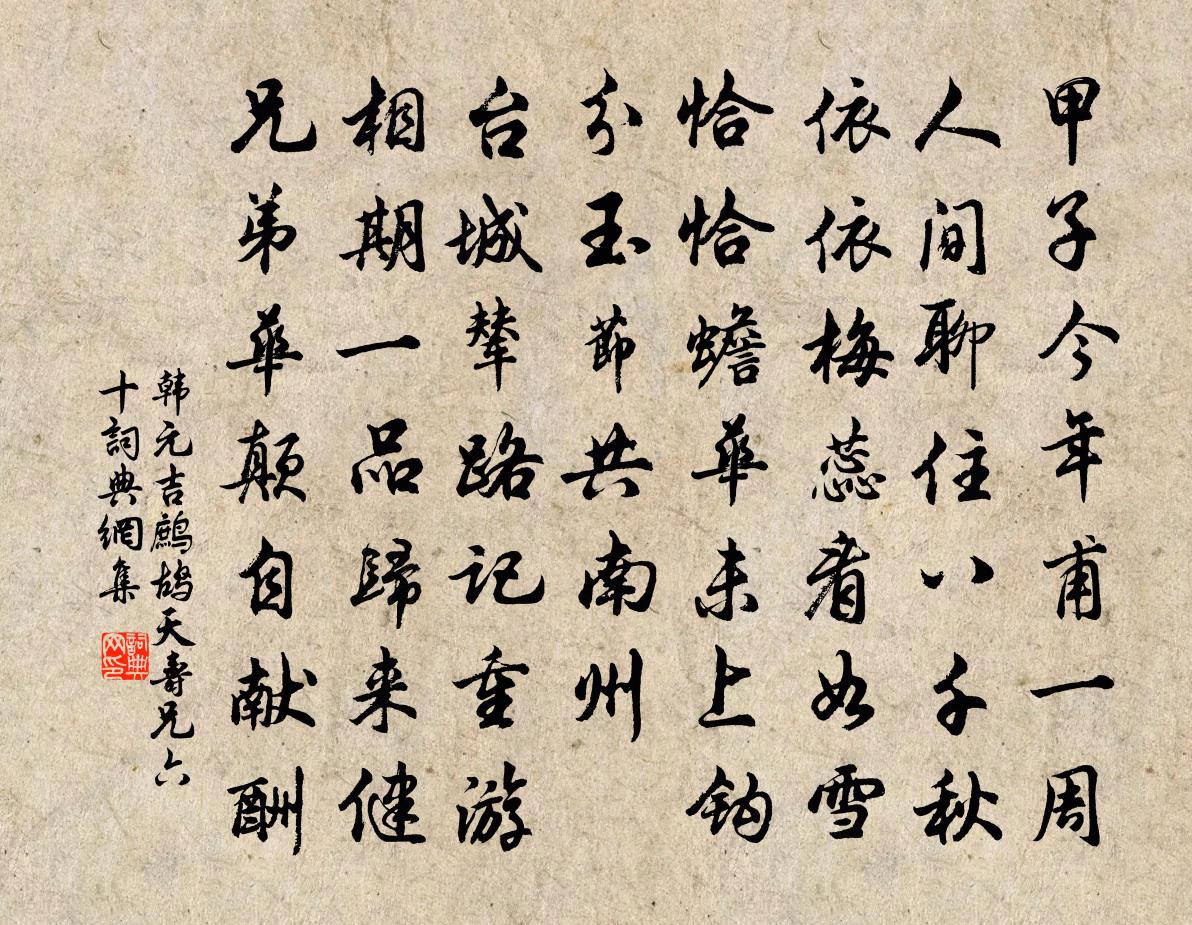 甲子今年甫一周
人间聊住八千秋
依依梅蕊看如雪
恰恰蟾华未上钩
分玉节共南州
台城辇路记重游
相期一品归来健
兄弟华颠自献酬
韩元吉鹧鸪天寿兄六
十词典网集